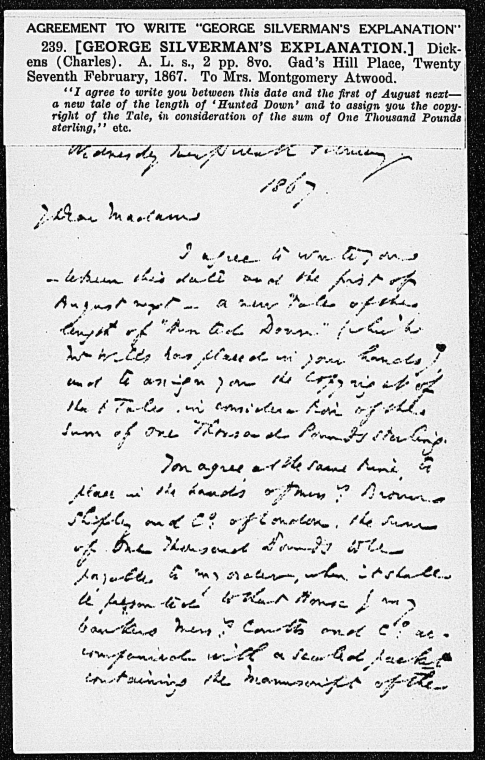 AGREEMENT TO WRITE "GEORGE SILVERMAN'S EXPLANATION"
239. [GEORGE SILVERMAN'S EXPLANATION.] Dick-
ens (Charles). A. L. s., 2 pp. 8vo. Gad's Hill Place, Twenty
Seventh February, 1867. To Mrs. Montgomery Atwood.
"I agree to write you between this date and the first of August next—
a new tale of the length of 'Hunted Down' and to assign you the copy-
right of the Tale, in consideration of the sum of One Thousand Pounds
sterling," etc.
Wednesday Twenty Seventh February
1867.
Dear Madam
I agree to write you
between this date and the first of
August next — a new Tale of the
length of "Hunted Down" (which
Mr Wills has placed in your hands)
and to assign you the Copyright of
that Tale, in consideration of the
sum of One Thousand Pounds sterling.
You agree, at the same time, to
place in the hands of Messrs Brown
Shipley and Co. of London, the sum
of One Thousand Pounds to be
payable to my order, when it shall
be presented to that House by my
bankers Messrs Coutts and Co. ac-
companied with a sealed packet
containing the Manuscript of the